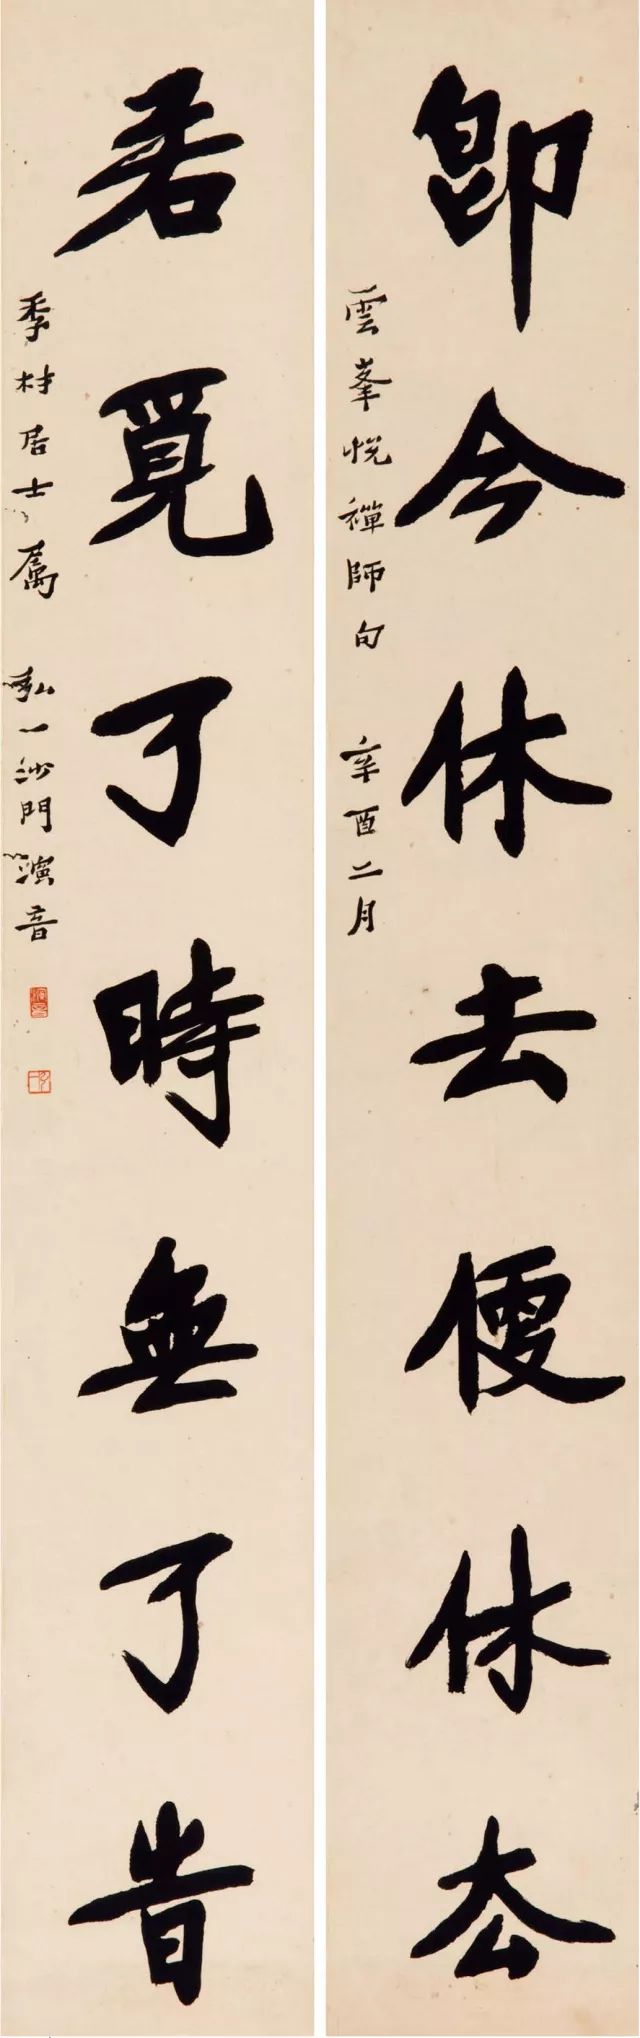 即今休去便休去
雲峯悅禪師句 辛酉二月
若覓了時無了旹
季材居士屬 弘一沙門演音
演音
弘一